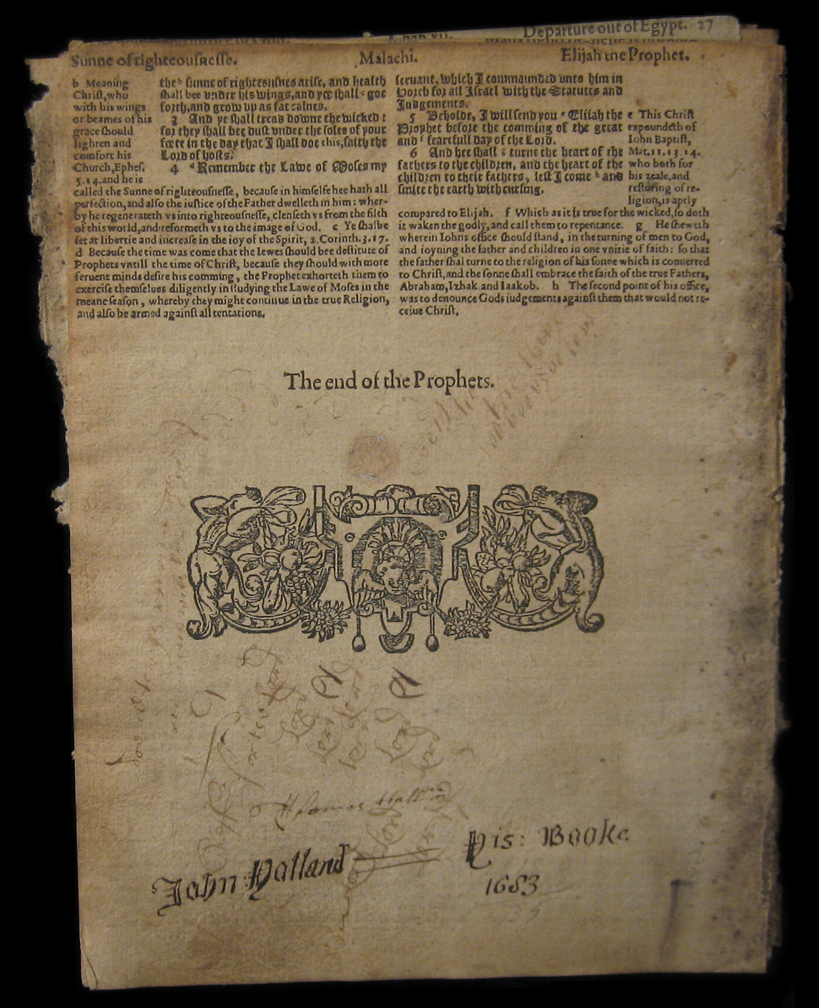 Departure out of Egypt. 27
Sunne of righteousnesse. Malachi. Elijah the Prophet.
b Meaning
Christ, who
with his wings
or beames of his
grace should
lighten and
comfort his
Church, Ephes.
5.14. and he is
the ʰ sunne of righteousnes arise, and health
shall bee vnder his wings, and yee shall ᶜ goe
forth, and grow vp as fat calues.
3 And ye shall tread downe the wicked :
for they shall bee dust vnder the soles of your
feete in the day that I shall doe this, saith the
Lord of hosts.
4 ᵈ Remember the Lawe of Moses my
called the Sunne of righteousnesse, because in himselfe hee hath all
perfection, and also the iustice of the Father dwelleth in him : wher-
by he regenerateth vs into righteousnesse, clenseth vs from the filth
of this world, and reformeth vs to the image of God. c Ye shalbe
set at libertie and increase in the ioy of the Spirit, 2. Corinth. 3. 17.
d Because the time was come that the Iewes should bee destitute of
Prophets vntill the time of Christ, because they should with more
feruent minds desire his comming, the Prophet exhorteth them to
exercise themselues diligently in studying the Lawe of Moses in the
meane season, whereby they might continue in the true Religion,
and also be armed against all tentations.
seruant, which I commaunded vnto him in
Horeb for all Israel with the Statutes and
Iudgements.
5 Beholde, I will send you ᵉ Eliiah the
Prophet before the comming of the great
and ᶠ fearefull day of the Lord.
6 And hee shall ᵍ turne the heart of the
fathers to the children, and the heart of the
children to their fathers, lest I come ʰ and
smite the earth with cursing.
e This Christ
expoundeth of
Iohn Baptist,
Mat. 11. 13. 14.
who both for
his zeale, and
restoring of re-
ligion, is aptly
compared to Elijah. f Which as it is true for the wicked, so doth
it waken the godly, and call them to repentance. g He sheweth
wherein Iohns office should stand, in the turning of men to God,
and ioyning the father and children in one vnitie of faith : so that
the father shal turne to the religion of his sonne which is conuerted
to Christ, and the sonne shall embrace the faith of the true Fathers,
Abraham, Izhak and Iaakob. h The second point of his office,
was to denounce Gods iudgements against them that would not re-
ceiue Christ.
The end of the Prophets.
Thomas
John Holland His: Booke
1683